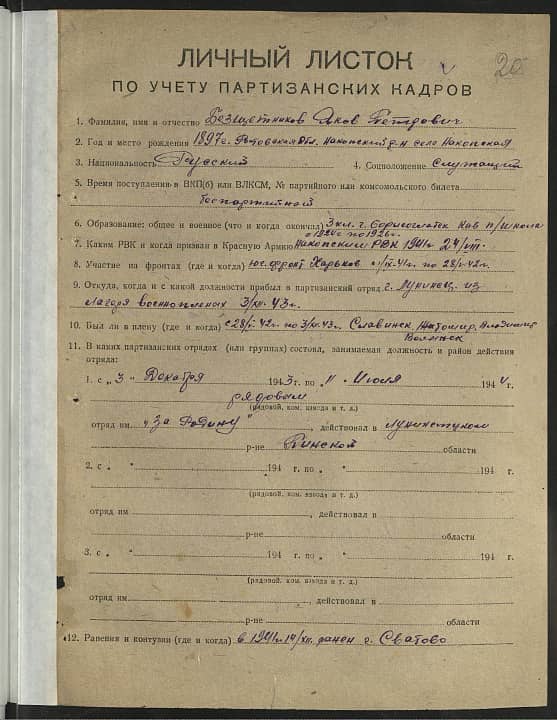 20
ЛИЧНЫЙ ЛИСТОК
ПО УЧЕТУ ПАРТИЗАНСКИХ КАДРОВ
1. Фамилия, имя и отчество Безщетников Яков Петрович
2. Год и место рождения 1897 г. Ростовская Обл. р-н село
3. Национальность Русский 4. Соцположение Служащий
5. Время поступления в ВКП(б) или ВЛКСМ, № партийного или комсомольского билета
беспартийный
6. Образование: общее и военное (что и когда окончил) 3 кл. г. Борисоглебск Кав п/школа
с 1924 г по 1926 г.
7. Каким РВК и когда призван в Красную Армию РВК 1941 г 24/VIII.
8. Участие на фронтах (где и когда) Юг. фронт Харьков IX-41 г. по 28/V-42 г.
9. Откуда, когда и с какой должности прибыл в партизанский отряд г. Лунинец. из
лагеря военнопленых 3/XII. 43 г.
10. Был ли в плену (где и когда) с 28/V-42 г. по 3/XII. 43 г. Славинск, Житомир, Владимир
Волынск
11. В каких партизанских отрядах (или группах) состоял, занимаемая должность и район действия
отряда:
1. с „3" Декабря 1943 г. по " Июля 1944 г.
рядовым
(рядовой, ком. взвода и т. д.)
отряд им „За Родину", действовал в Лунинецком
р-не Пинской области
2. с „ " 194 г. по „ " 194 г.
(рядовой, ком. взвода и т. д.)
отряд им , действовал в
р-не области
3. с „ " 194 г. по „ " 194 г.
(рядовой, ком. взвода и т. д.)
отряд им , действовал в
р-не области
12. Ранения и контузии (где и когда) в 1941 г 14/XII. ранен г. Сватово